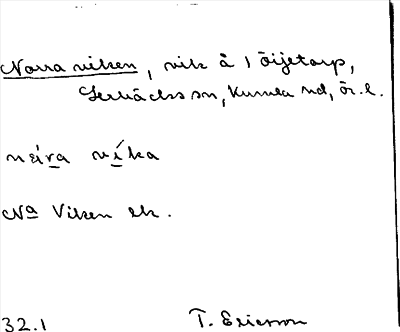 Norra viken, vik å 1 Öijetorp,
Lerbäcks sn, Kumla hd, Ör. l.
neíra víka
Na Viken ek.
32.1 T. Ericsson